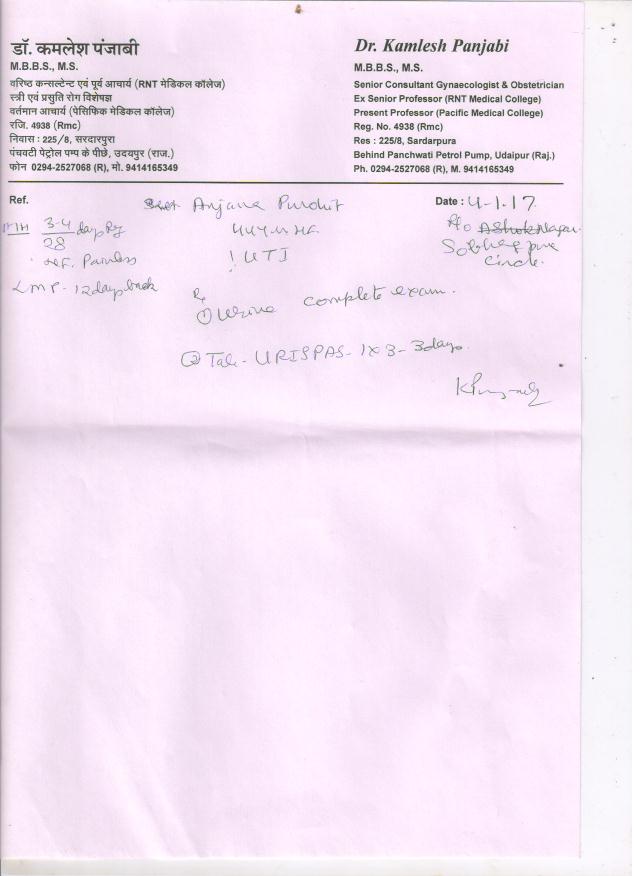 डॉ. कमलेश पंजाबी
M.B.B.S., M.S.
वरिष्ठ कन्सल्टेन्ट एवं पूर्व आचार्य (RNT मेडिकल कॉलेज)
स्त्री एवं प्रसुति रोग विशेषज्ञ
वर्तमान आचार्य (पेसिफिक मेडिकल कॉलेज)
रजि. 4938 (Rmc)
निवास : 225/8, सरदारपुरा
पंचवटी पेट्रोल पम्प के पीछे, उदयपुर (राज.)
फोन 0294-2527068 (R), मो. 9414165349
Dr. Kamlesh Panjabi
M.B.B.S., M.S.
Senior Consultant Gynaecologist & Obstetrician
Ex Senior Professor (RNT Medical College)
Present Professor (Pacific Medical College)
Reg. No. 4938 (Rmc)
Res : 225/8, Sardarpura
Behind Panchwati Petrol Pump, Udaipur (Raj.)
Ph. 0294-2527068 (R), M. 9414165349
Ref.
Anjana Purohit
Date : 4-1-17
M/H 3-4 days
28
Painless
LMP - 12 days back
44
! UTI
R/o Ashok Nagar
Circle.
Rx
① Urine complete exam.
② Tab - URISPAS - 1x3 - 3days.